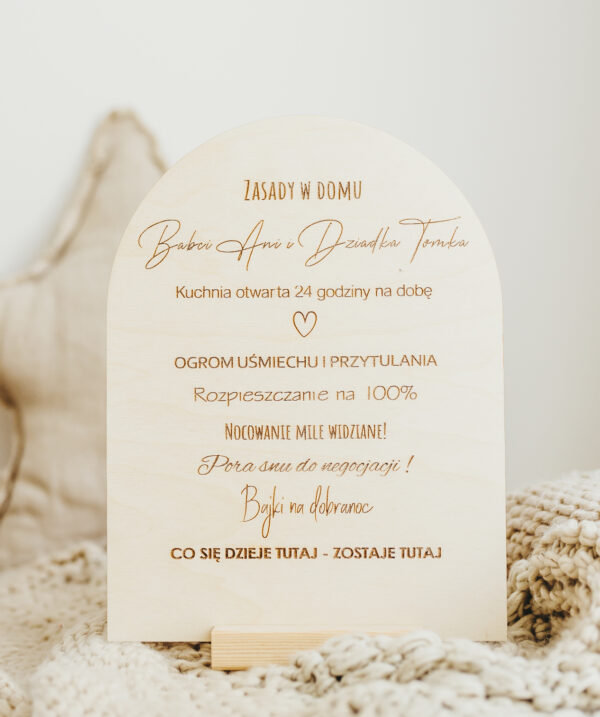 Zasady w domu
Babci Ani i Dziadka Tomka
Kuchnia otwarta 24 godziny na dobę
OGROM UŚMIECHU I PRZYTULANIA
Rozpieszczanie na 100%
Nocowanie mile widziane!
Pora snu do negocjacji!
Bajki na dobranoc
CO SIĘ DZIEJE TUTAJ - ZOSTAJE TUTAJ